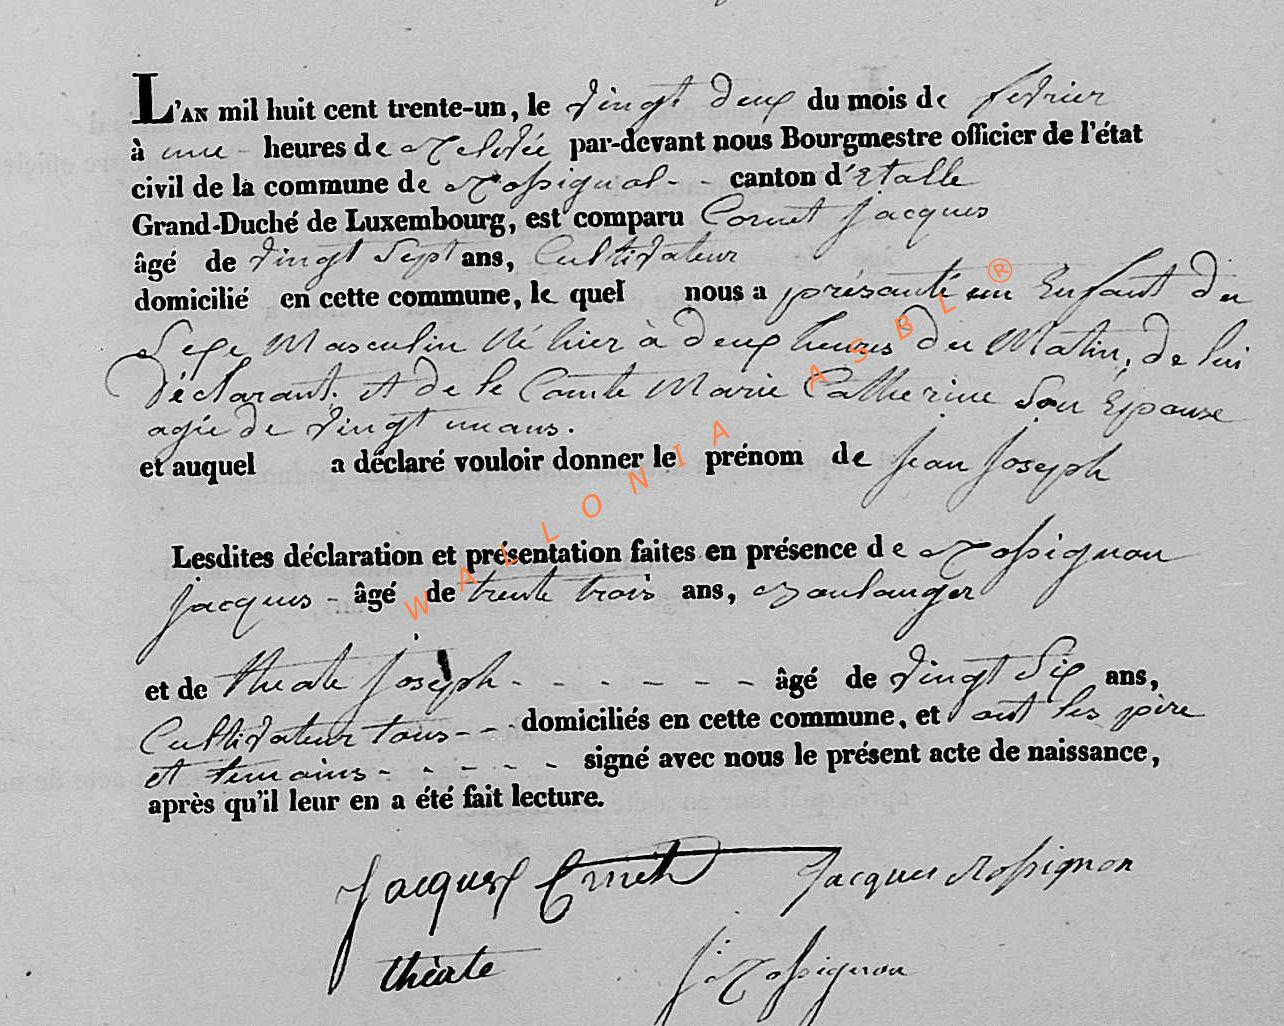 L'AN mil huit cent trente-un, le vingt deux du mois de fevrier
à une - heures de relevée par-devant nous Bourgmestre officier de l'état
civil de la commune de Rossignol - - canton d'Etalle
Grand-Duché de Luxembourg, est comparu Cornet Jacques
âgé de vingt Sept ans, Cultivateur
domicilié en cette commune, le quel nous a présanté un Enfant du
Sexe Masculin Né hier à deux heures du Matin, de lui
déclarant. et de le Comte Marie Catherine Son Epouse
agée de vingt un ans.
et auquel a déclaré vouloir donner le prénom de Jean Joseph
Lesdites déclaration et présentation faites en présence de Rossignon
Jacques - âgé de trente trois ans, Boulanger
et de theate Joseph - - - - - - - âgé de vingt Six ans,
Cultivateur tous - - domiciliés en cette commune, et ont les père
et temoins - - - - - signé avec nous le présent acte de naissance,
après qu'il leur en a été fait lecture.
Jacques Cornet Jacques Rossignon
théate J: Rossignon
WALLONIA ASBL ®